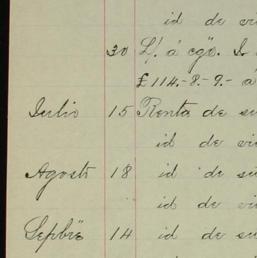 id de
30 L/. á cgō.
£114.-8.-9.- á
Julio 15 Renta de
id de
Agosto 18 id de
id de
Sepbre 14 id de
id de